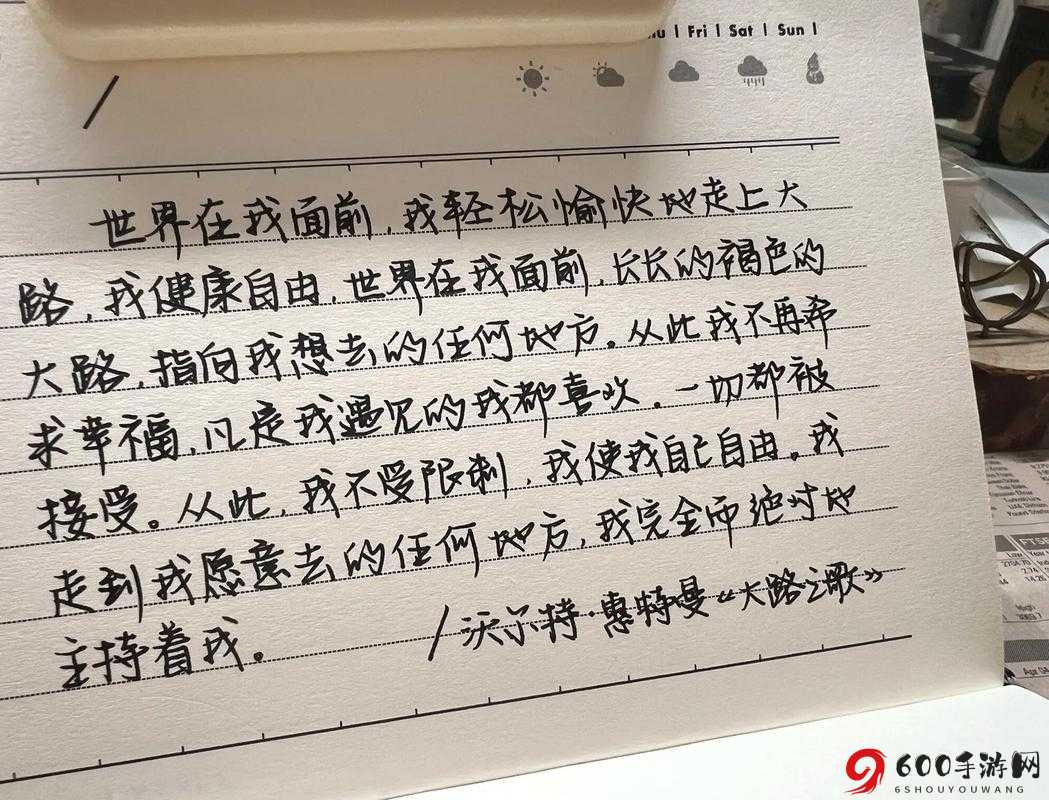 Fri | Sat | Sun |
世界在我面前,我轻松愉快地走上大
路,我健康自由,世界在我面前,长长的褐色的
大路,指向我想去的任何地方。从此我不再希
求幸福,凡是我遇见的我都喜欢。一切都被
接受。从此,我不受限制,我使我自己自由。我
走到我愿意去的任何地方,我完全而绝对地
主持着我。
/沃尔特·惠特曼《大路之歌》
FTSE
Low
High
Apr 04
600手游网
6SHOUYOUWANG